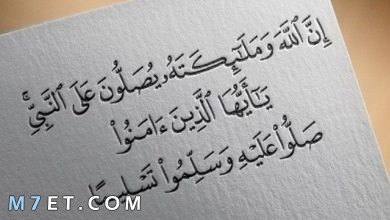 إِنَّ ٱللَّهَ وَمَلَٰٓئِكَتَهُۥ يُصَلُّونَ عَلَى ٱلنَّبِيِّۚ
يَٰٓأَيُّهَا ٱلَّذِينَ ءَامَنُوا۟
صَلُّوا۟ عَلَيْهِ وَسَلِّمُوا۟ تَسْلِيمًا
M7ET.COM